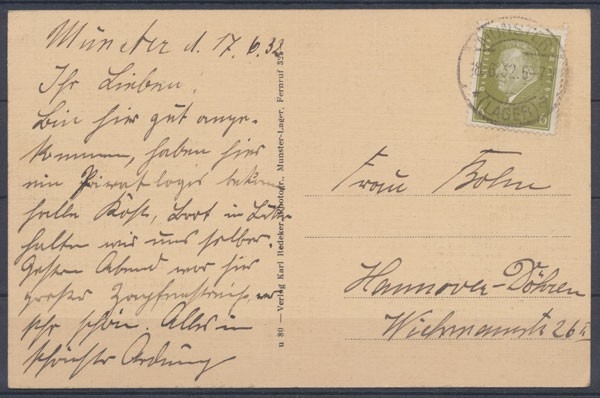 Münster d. 17.6.32
Ihr Lieben.
Bin hier gut ange-
kommen, haben hier
ein Privatlogis bekom
halle Kost, Brot u
halten wir uns selber.
Gestern Abend war hier
großer Zapfenstreich, war
sehr schön. Alles in
schönster Ordnung
u 80 — Verlag Karl Redeker, Photogr., Munster-Lager, Fernruf 328
18.6.32.6-7
(LAGER)
Frau Bohn
Hannover-Döhren
Wiehrmannstr 26 II